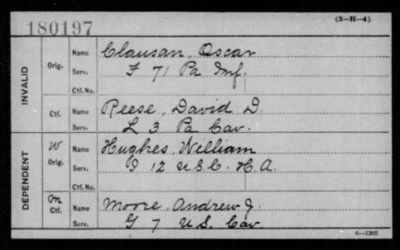 180197
(3-H-4)
INVALID
Orig. Name Clausan, Oscar
Serv. F 71 Pa Inf.
Ctf. No.
Ctf. Name Reese, David D.
Serv. L 3 Pa Cav.
DEPENDENT
W Orig. Name Hughes, William
Serv. I 12 U.S.C. H.A.
Ctf. No.
M Ctf. Name Moore, Andrew J.
Serv. G 7 U.S. Cav.